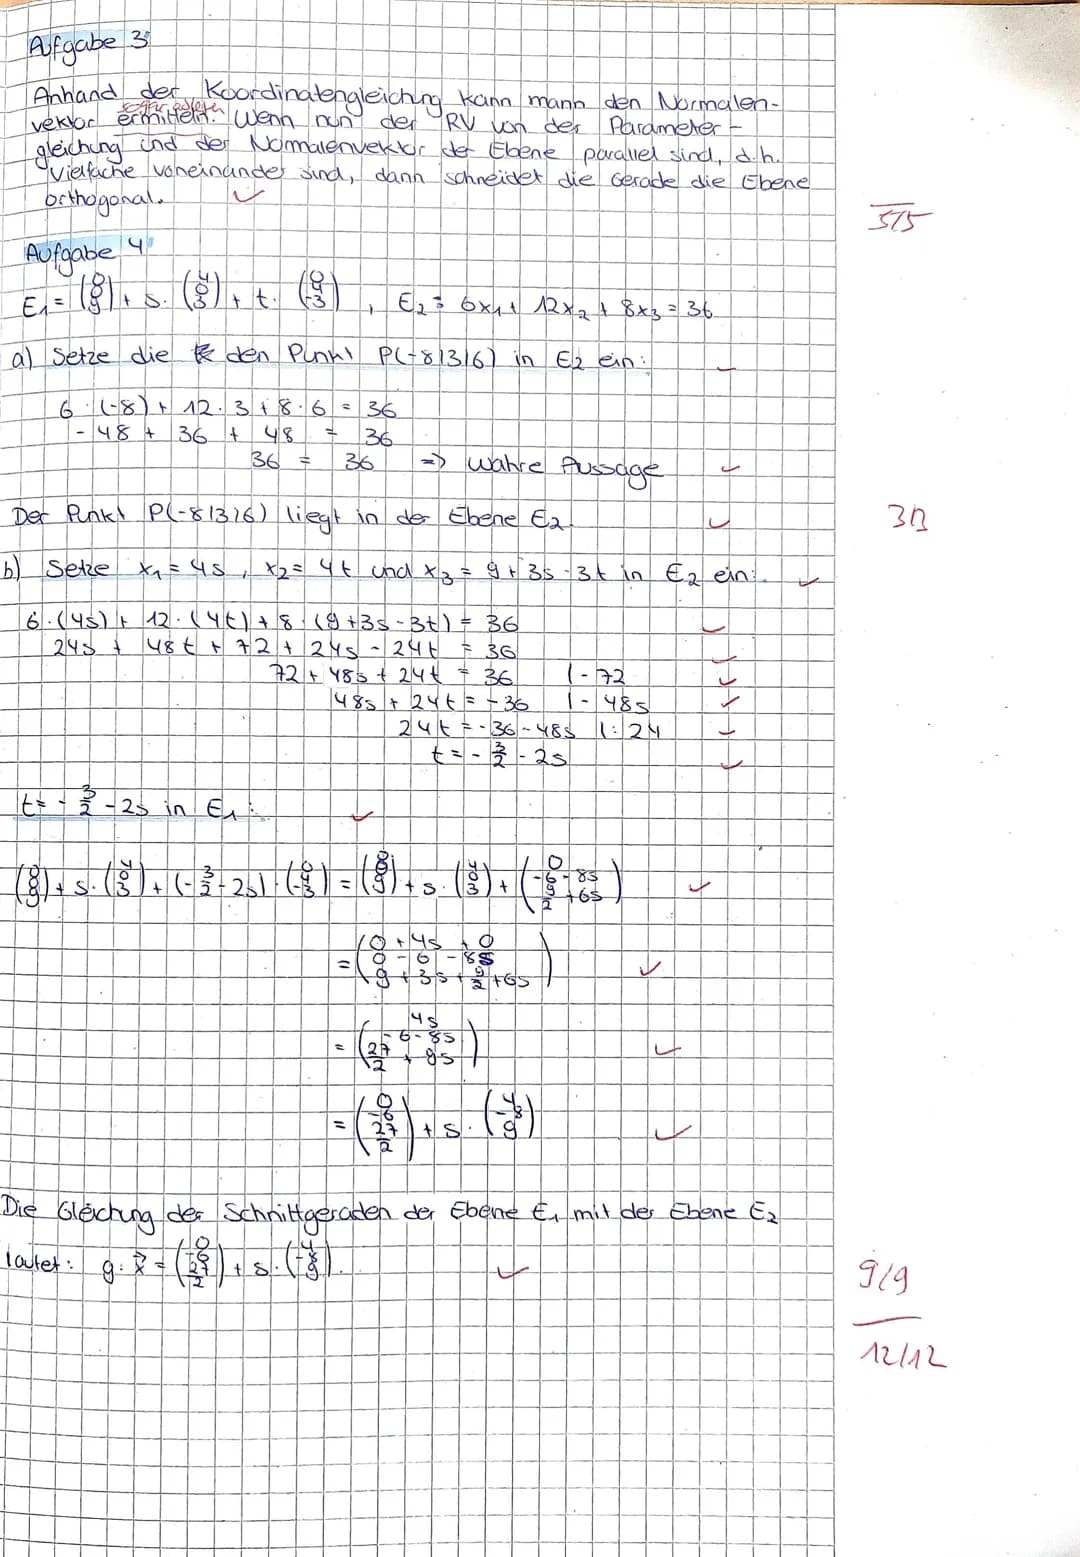 Aufgabe 3
Anhand der Koordinatengleichung kann mann den Normalen-
sogar ablesen
vektor ermitteln. Wenn nun der RV von der Parameter-
gleichung und der Normalenvektor der Ebene parallel sind, d.h.
Vielfache voneinander sind, dann schneidet die Gerade die Ebene
orthogonal. ✓
5/5
Aufgabe 4
E₁ = (0 0 9) + s · (4 0 3) + t · (0 4 -3) , E₂ = 6x₁ + 12x₂ + 8x₃ = 36
a) Setze die den Punkt P(-8|3|6) in E₂ ein:
6 · (-8) + 12 · 3 + 8 · 6 = 36
-48 + 36 + 48 = 36
36 = 36 => Wahre Aussage ✓
Der Punkt P(-8|3|6) liegt in der Ebene E₂. ✓ 3/3
b) Setze x₁ = 4s, x₂ = 4t und x₃ = 9 + 3s - 3t in E₂ ein: ✓
6 · (4s) + 12 · (4t) + 8 · (9 + 3s - 3t) = 36 ✓
24s + 48t + 72 + 24s - 24t = 36 ✓
72 + 48s + 24t = 36 | - 72 ✓
48s + 24t = -36 | - 48s ✓
24t = -36 - 48s | : 24 ✓
t = -3/2 - 2s ✓
t = -3/2 - 2s in E₁: ✓
(0 0 9) + s · (4 0 3) + (-3/2 - 2s) · (0 4 -3) = (0 0 9) + s · (4 0 3) + (0 -6-8s 9/2+6s) ✓
= (0+4s+0 0-6-8s 9+3s+9/2+6s) ✓
= (4s -6-8s 27/2+9s) ✓
= (0 -6 27/2) + s · (4 -8 9) ✓
Die Gleichung der Schnittgeraden der Ebene E₁ mit der Ebene E₂
lautet: g: x⃗ = (0 -6 27/2) + s · (4 -8 9). ✓
9/9
12/12